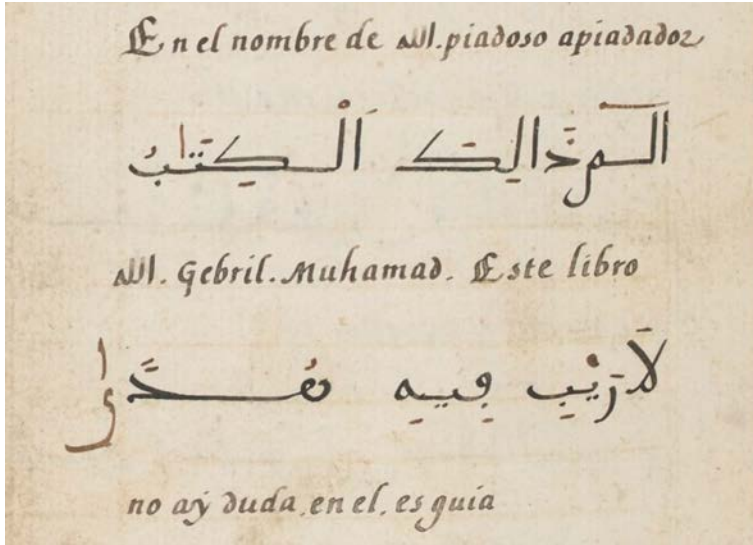 En el nombre de الله. piadoso apiadador
الٓمٓ ذَالِكَ اَلْكِتَٰبُ
الله. Gebril. Muhamad. Este libro
لَا رَيْبَ فِيهِ هُدًى
no aý duda, en el, es guia